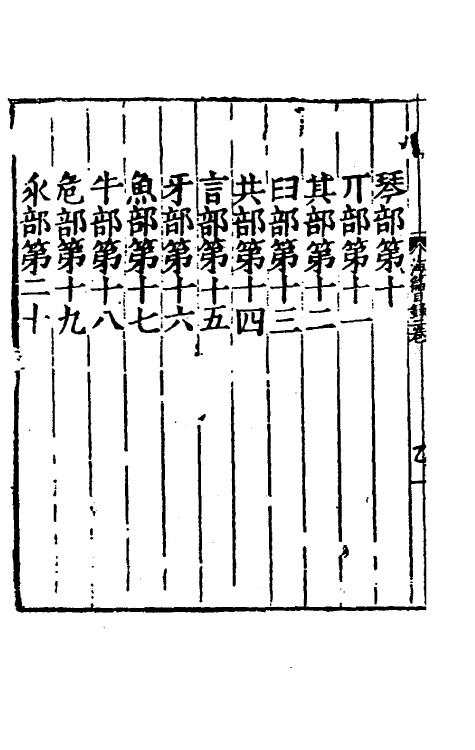 琴部第十
丌部第十一
其部第十二
𦥑部第十三
共部第十四
言部第十五
牙部第十六
魚部第十七
牛部第十八
危部第十九
永部第二十